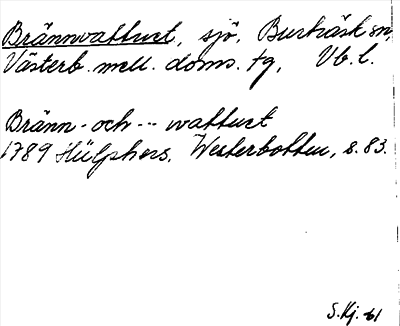 Brännvattnet, sjö, Burträsk sn,
Västerb. mell. doms. tg, Vb. l.
Bränn- och --- wattnet
1789 Hülphers, Westerbotten, s. 83.
S. Hj. 61